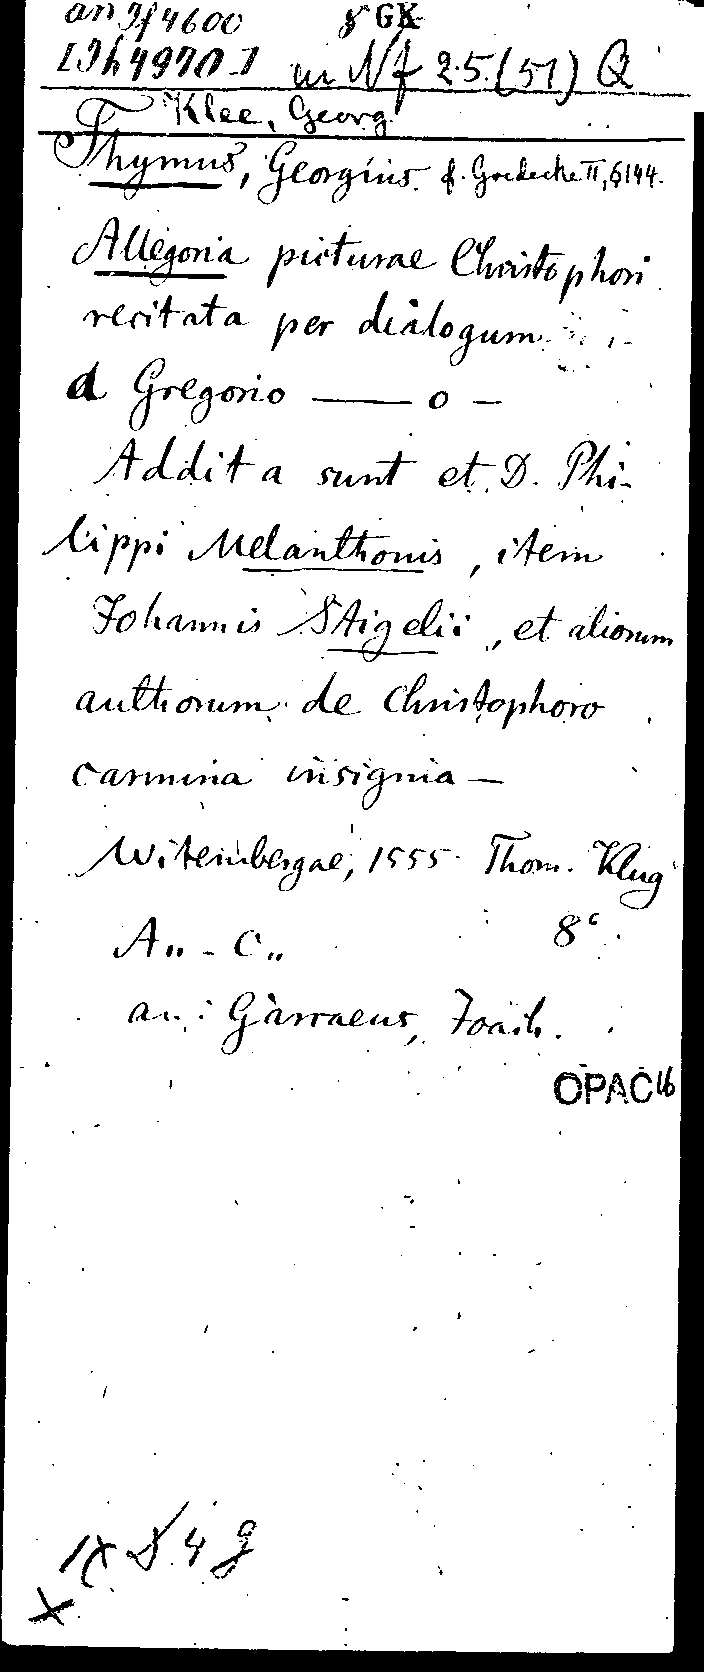 an If 4600 8 GK
[Ih 4970] in Nf 25 (51) Q
Klee, Georg
Thymus, Georgius. f. Goedecke II, § 144.
Allegoria picturae Christophori
recitata per dialogum
d Gregorio — o —
Addita sunt et D. Phi-
lippi Melanthonis, item
Johannis Stigelii, et aliorum
authorum de Christophoro
carmina insignia —
Witembergae, 1555. Thom. Klug
A,, - C,, 8°
an: Garcaeus, Joach.
OPAC 16